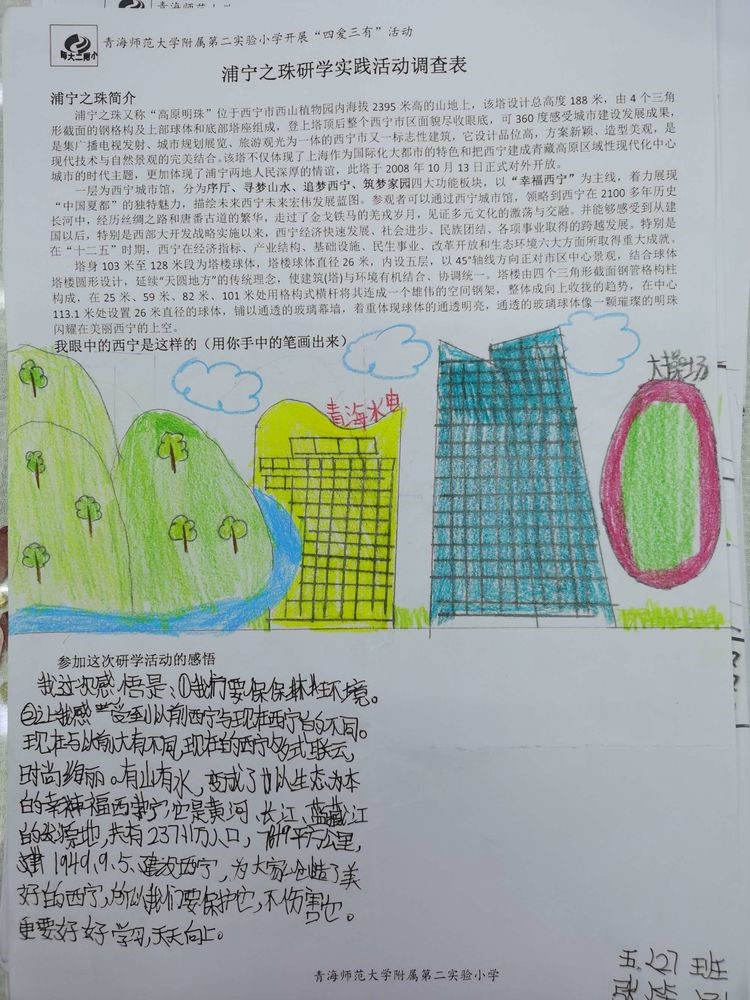 师大二附小
青海师范大学附属第二实验小学开展“四爱三有”活动
浦宁之珠研学实践活动调查表
浦宁之珠简介
浦宁之珠又称“高原明珠”位于西宁市西山植物园内海拔 2395 米高的山地上，该塔设计总高度 188 米，由 4 个三角
形截面的钢格构及上部球体和底部塔座组成，登上塔顶后整个西宁市区面貌尽收眼底，可 360 度感受城市建设发展成果，
是集广播电视发射、城市规划展览、旅游观光为一体的西宁市又一标志性建筑，它设计品位高，方案新颖、造型美观，是
现代技术与自然景观的完美结合。该塔不仅体现了上海作为国际化大都市的特色和把西宁建成青藏高原区域性现代化中心
城市的时代主题，更加体现了浦宁两地人民深厚的情谊，此塔于 2008 年 10 月 13 日正式对外开放。
一层为西宁城市馆，分为序厅、寻梦山水、追梦西宁、筑梦家园四大功能板块，以“幸福西宁”为主线，着力展现
“中国夏都”的独特魅力，描绘未来西宁未来宏伟发展蓝图。参观者可以通过西宁城市馆，领略到西宁在 2100 多年历史
长河中，经历丝绸之路和唐番古道的繁华，走过了金戈铁马的羌戎岁月，见证多元文化的激荡与交融。并能够感受到从建
国以后，特别是西部大开发战略实施以来，西宁经济快速发展、社会进步、民族团结、各项事业取得的跨越发展。特别是
在“十二五”时期，西宁在经济指标、产业结构、基础设施、民生事业、改革开放和生态环境六大方面所取得重大成就。
塔身 103 米至 128 米段为塔楼球体，塔楼球体直径 26 米，内设五层，以 45°轴线方向正对市区中心景观，结合球体
塔楼圆形设计，延续“天圆地方”的传统理念，使建筑(塔)与环境有机结合、协调统一。塔楼由四个三角形截面钢管格构柱
构成，在 25 米、59 米、82 米、101 米处用格构式横杆将其连成一个雄伟的空间钢架，整体成向上收拢的趋势，在中心
113.1 米处设置 26 米直径的球体，铺以通透的玻璃幕墙，着重体现球体的通透明亮，通透的玻璃球体像一颗璀璨的明珠
闪耀在美丽西宁的上空。
我眼中的西宁是这样的（用你手中的笔画出来）
青海水电
大操场
参加这次研学活动的感悟
我这次感悟是：①我们要保护环境。
②让我感受到以前西宁与现在西宁的不同。
现在与以前大有不同，现在的西宁
时尚绚丽。有山有水，变成了以生态为本
的幸福西宁，它是黄河、长江、澜藏江
的发源地，共有237.11万人口，7649平方公里，
1949.9.5、建设西宁，为大家创造了美
好的西宁，所以我们要保护它，不伤害它。
重要好好学习，天天向上。
青海师范大学附属第二实验小学
五.227班